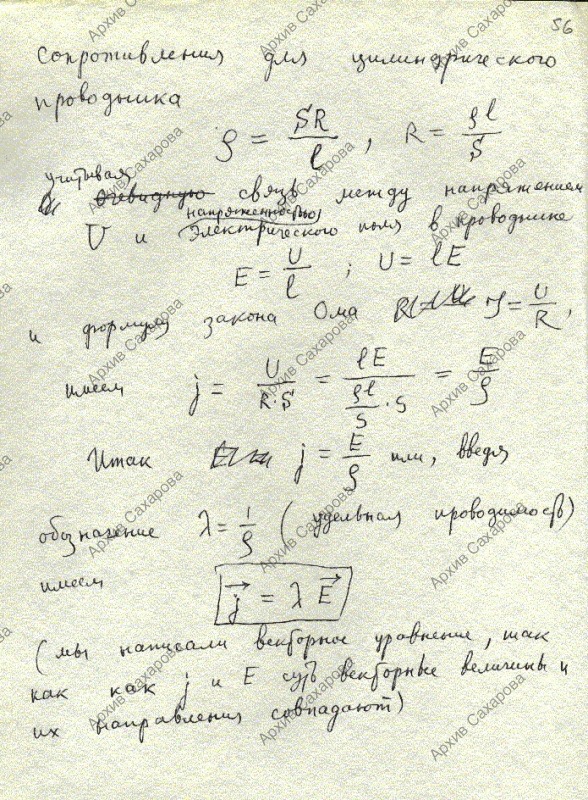 56
сопротивления для цилиндрического
проводника
ρ = SR/l , R = ρl/S
учитывая
и очевидную связь между напряжением
напряженностью
U и электрического поля в проводнике
E = U/l ; U = lE
и формулу закона Ома J = U/R,
имеем j = U/(R·S) = lE/((ρl/S)·S) = E/ρ
Итак j = E/ρ или, введя
обозначение λ = 1/ρ (удельная проводимость)
имеем
j⃗ = λ E⃗
(мы написали векторное уравнение, так
как как j и E суть векторные величины и
их направления совпадают)
Архив Сахарова